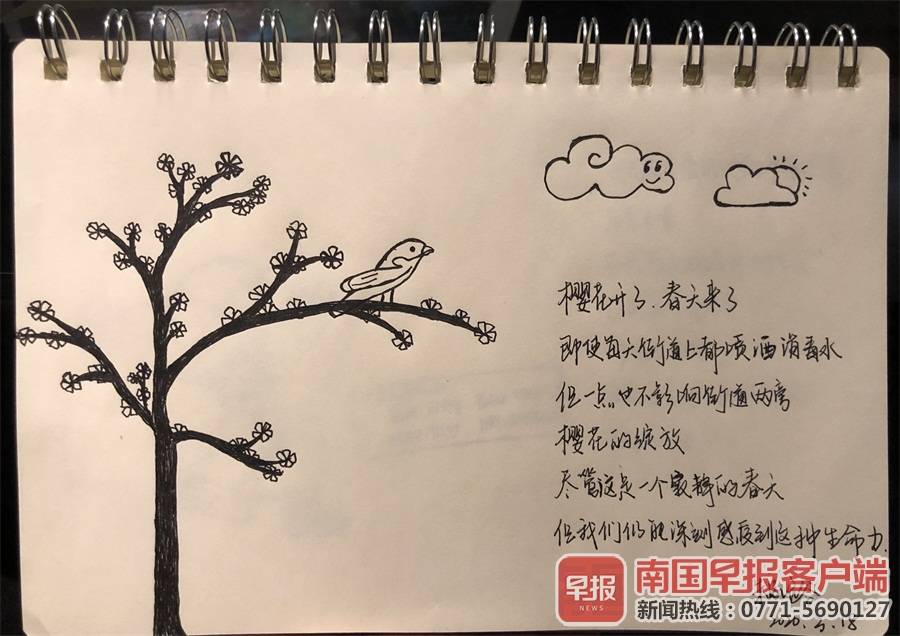 樱花开了.春天来了
即使每天街道上都喷洒消毒水
但一点也不影响街道两旁
樱花的绽放
尽管这是一个寂静的春天
但我们仍能深刻感受到这种生命力.
早报
NEWS
南国早报客户端
新闻热线：0771-5690127